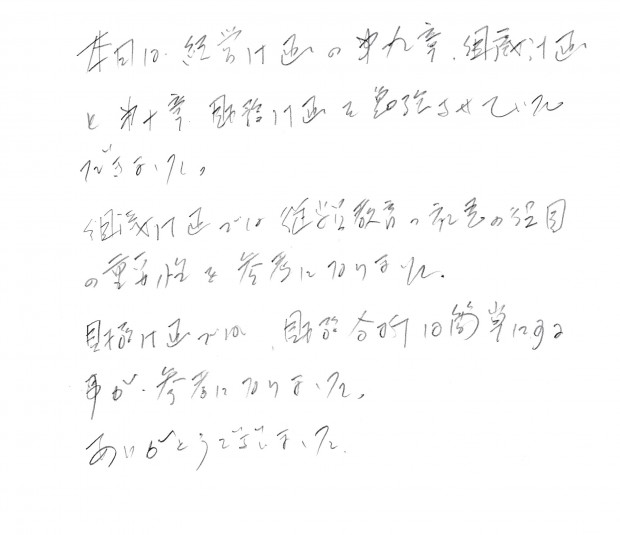 本日は、経営計画の第九章、組織計画
と第十章、財務計画を勉強させていた
だきました。
組織計画では従業員教育の
の重要性を参考になりました。
財務計画では、財務分析は簡単にする
事が、参考になりました。
ありがとうございました。